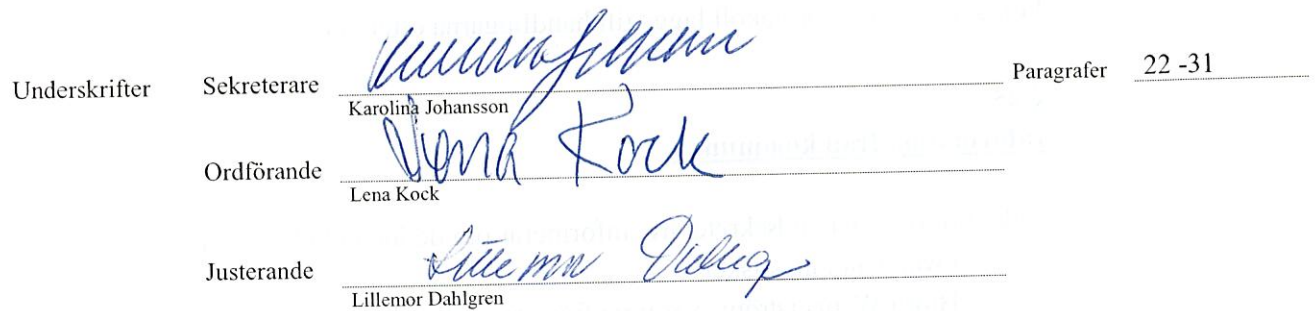 Underskrifter Sekreterare Paragrafer 22 -31
Karolina Johansson
Ordförande Lena Kock
Lena Kock
Justerande Lillemor Dahlgren
Lillemor Dahlgren